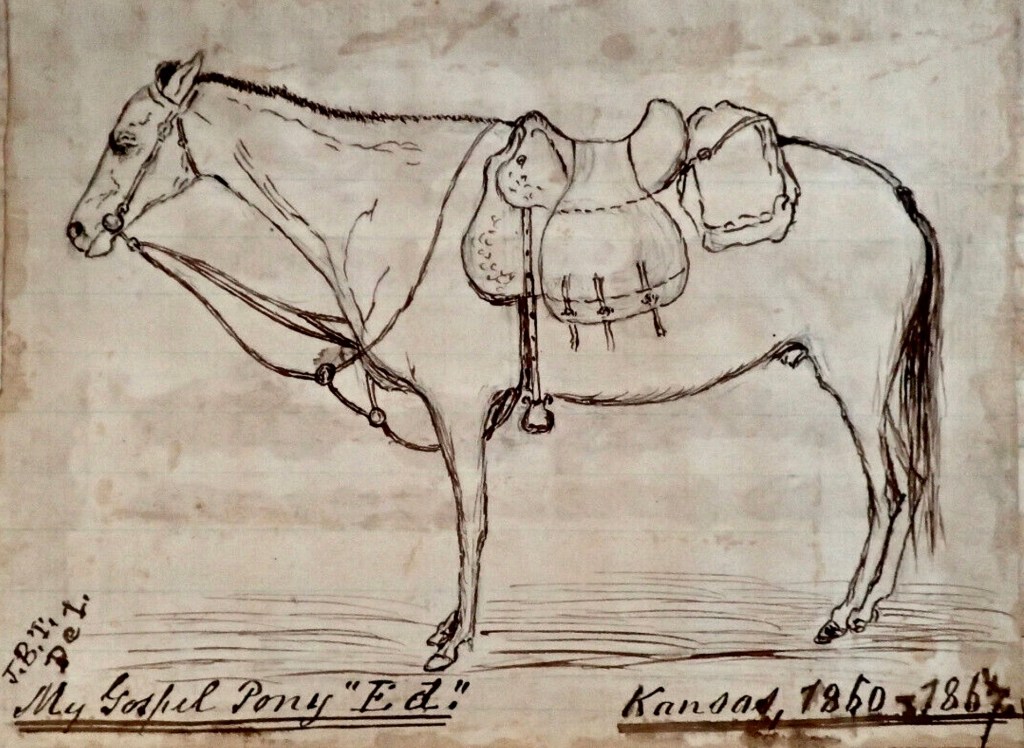 J.B.T.
Del.
My Gospel Pony "Ed."
Kansas, 1860 -